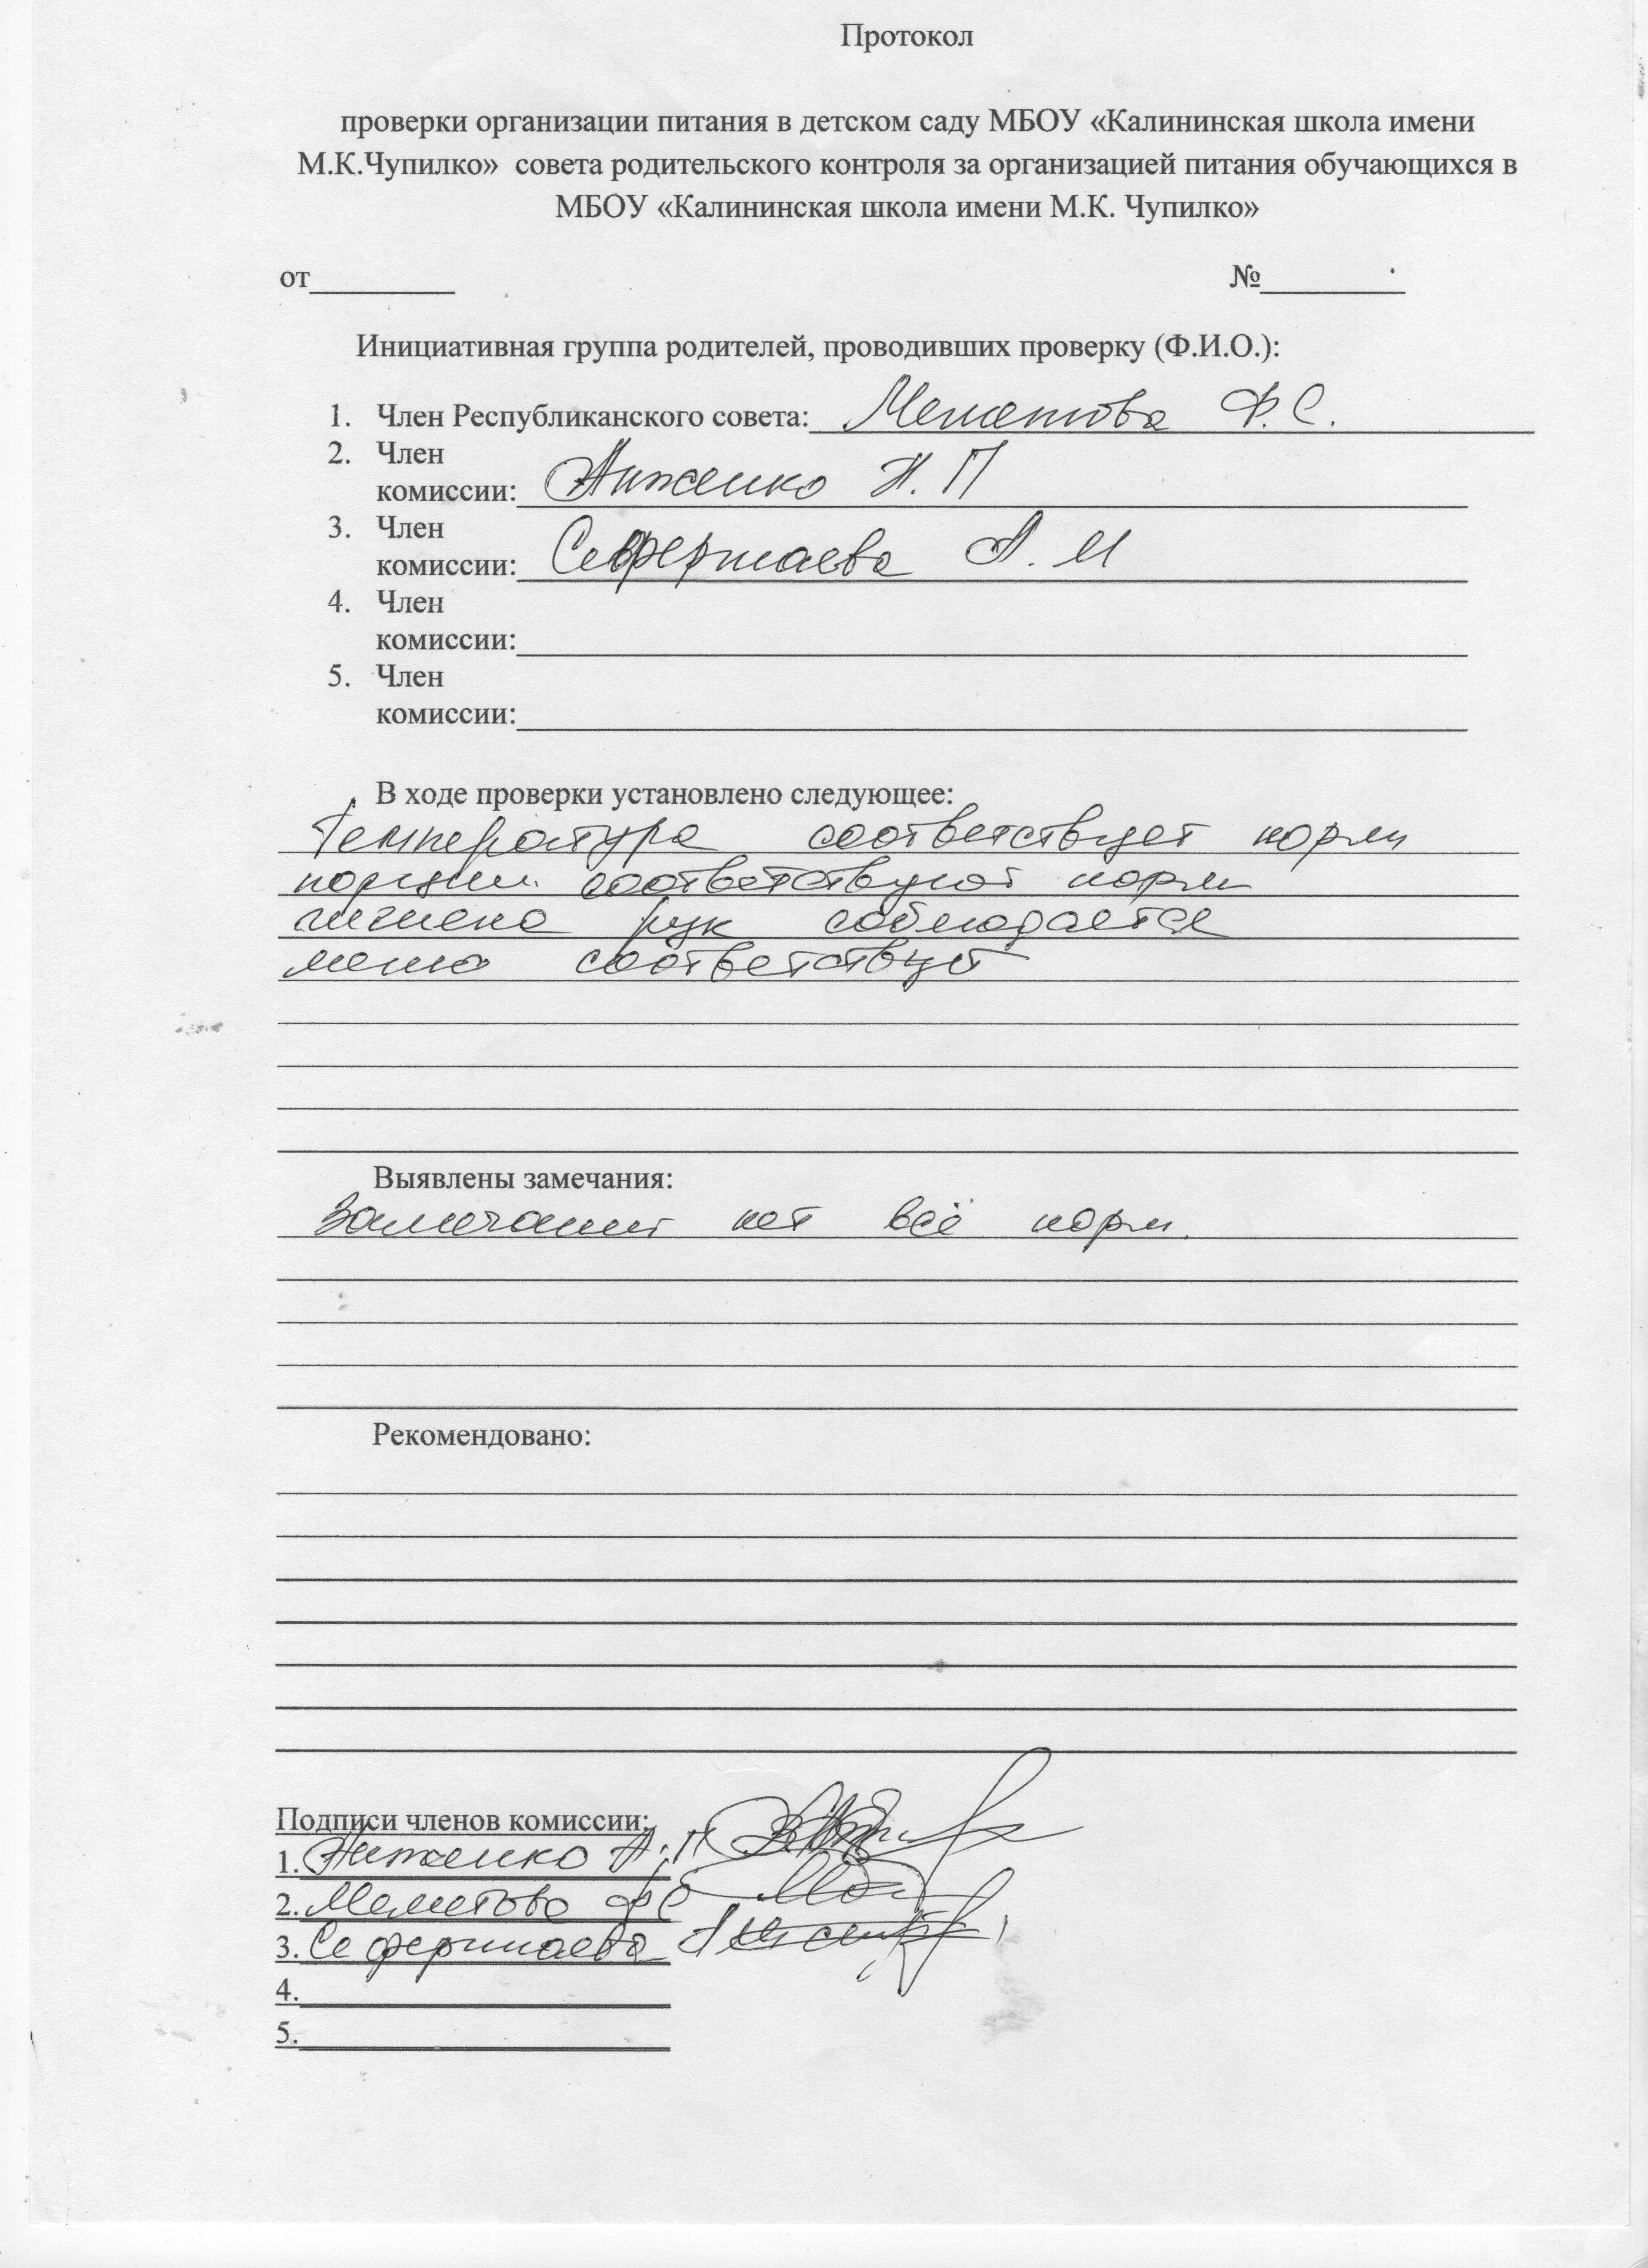 Протокол
проверки организации питания в детском саду МБОУ «Калининская школа имени
М.К.Чупилко» совета родительского контроля за организацией питания обучающихся в
МБОУ «Калининская школа имени М.К. Чупилко»
от_________ №_________
Инициативная группа родителей, проводивших проверку (Ф.И.О.):
1. Член Республиканского совета: Меметова Ф.С.
2. Член
комиссии: Анженко Н. П
3. Член
комиссии: Сефершаева А. И
4. Член
комиссии:
5. Член
комиссии:
В ходе проверки установлено следующее:
Температура соответствует норм
порции соответствуют норм
гигиена рук соблюдается
меню соответствует
Выявлены замечания:
Замечаний нет всё норм.
Рекомендовано:
Подписи членов комиссии:
1. Анженко
2. Меметова ФС
3. Сефершаева А
4.
5.